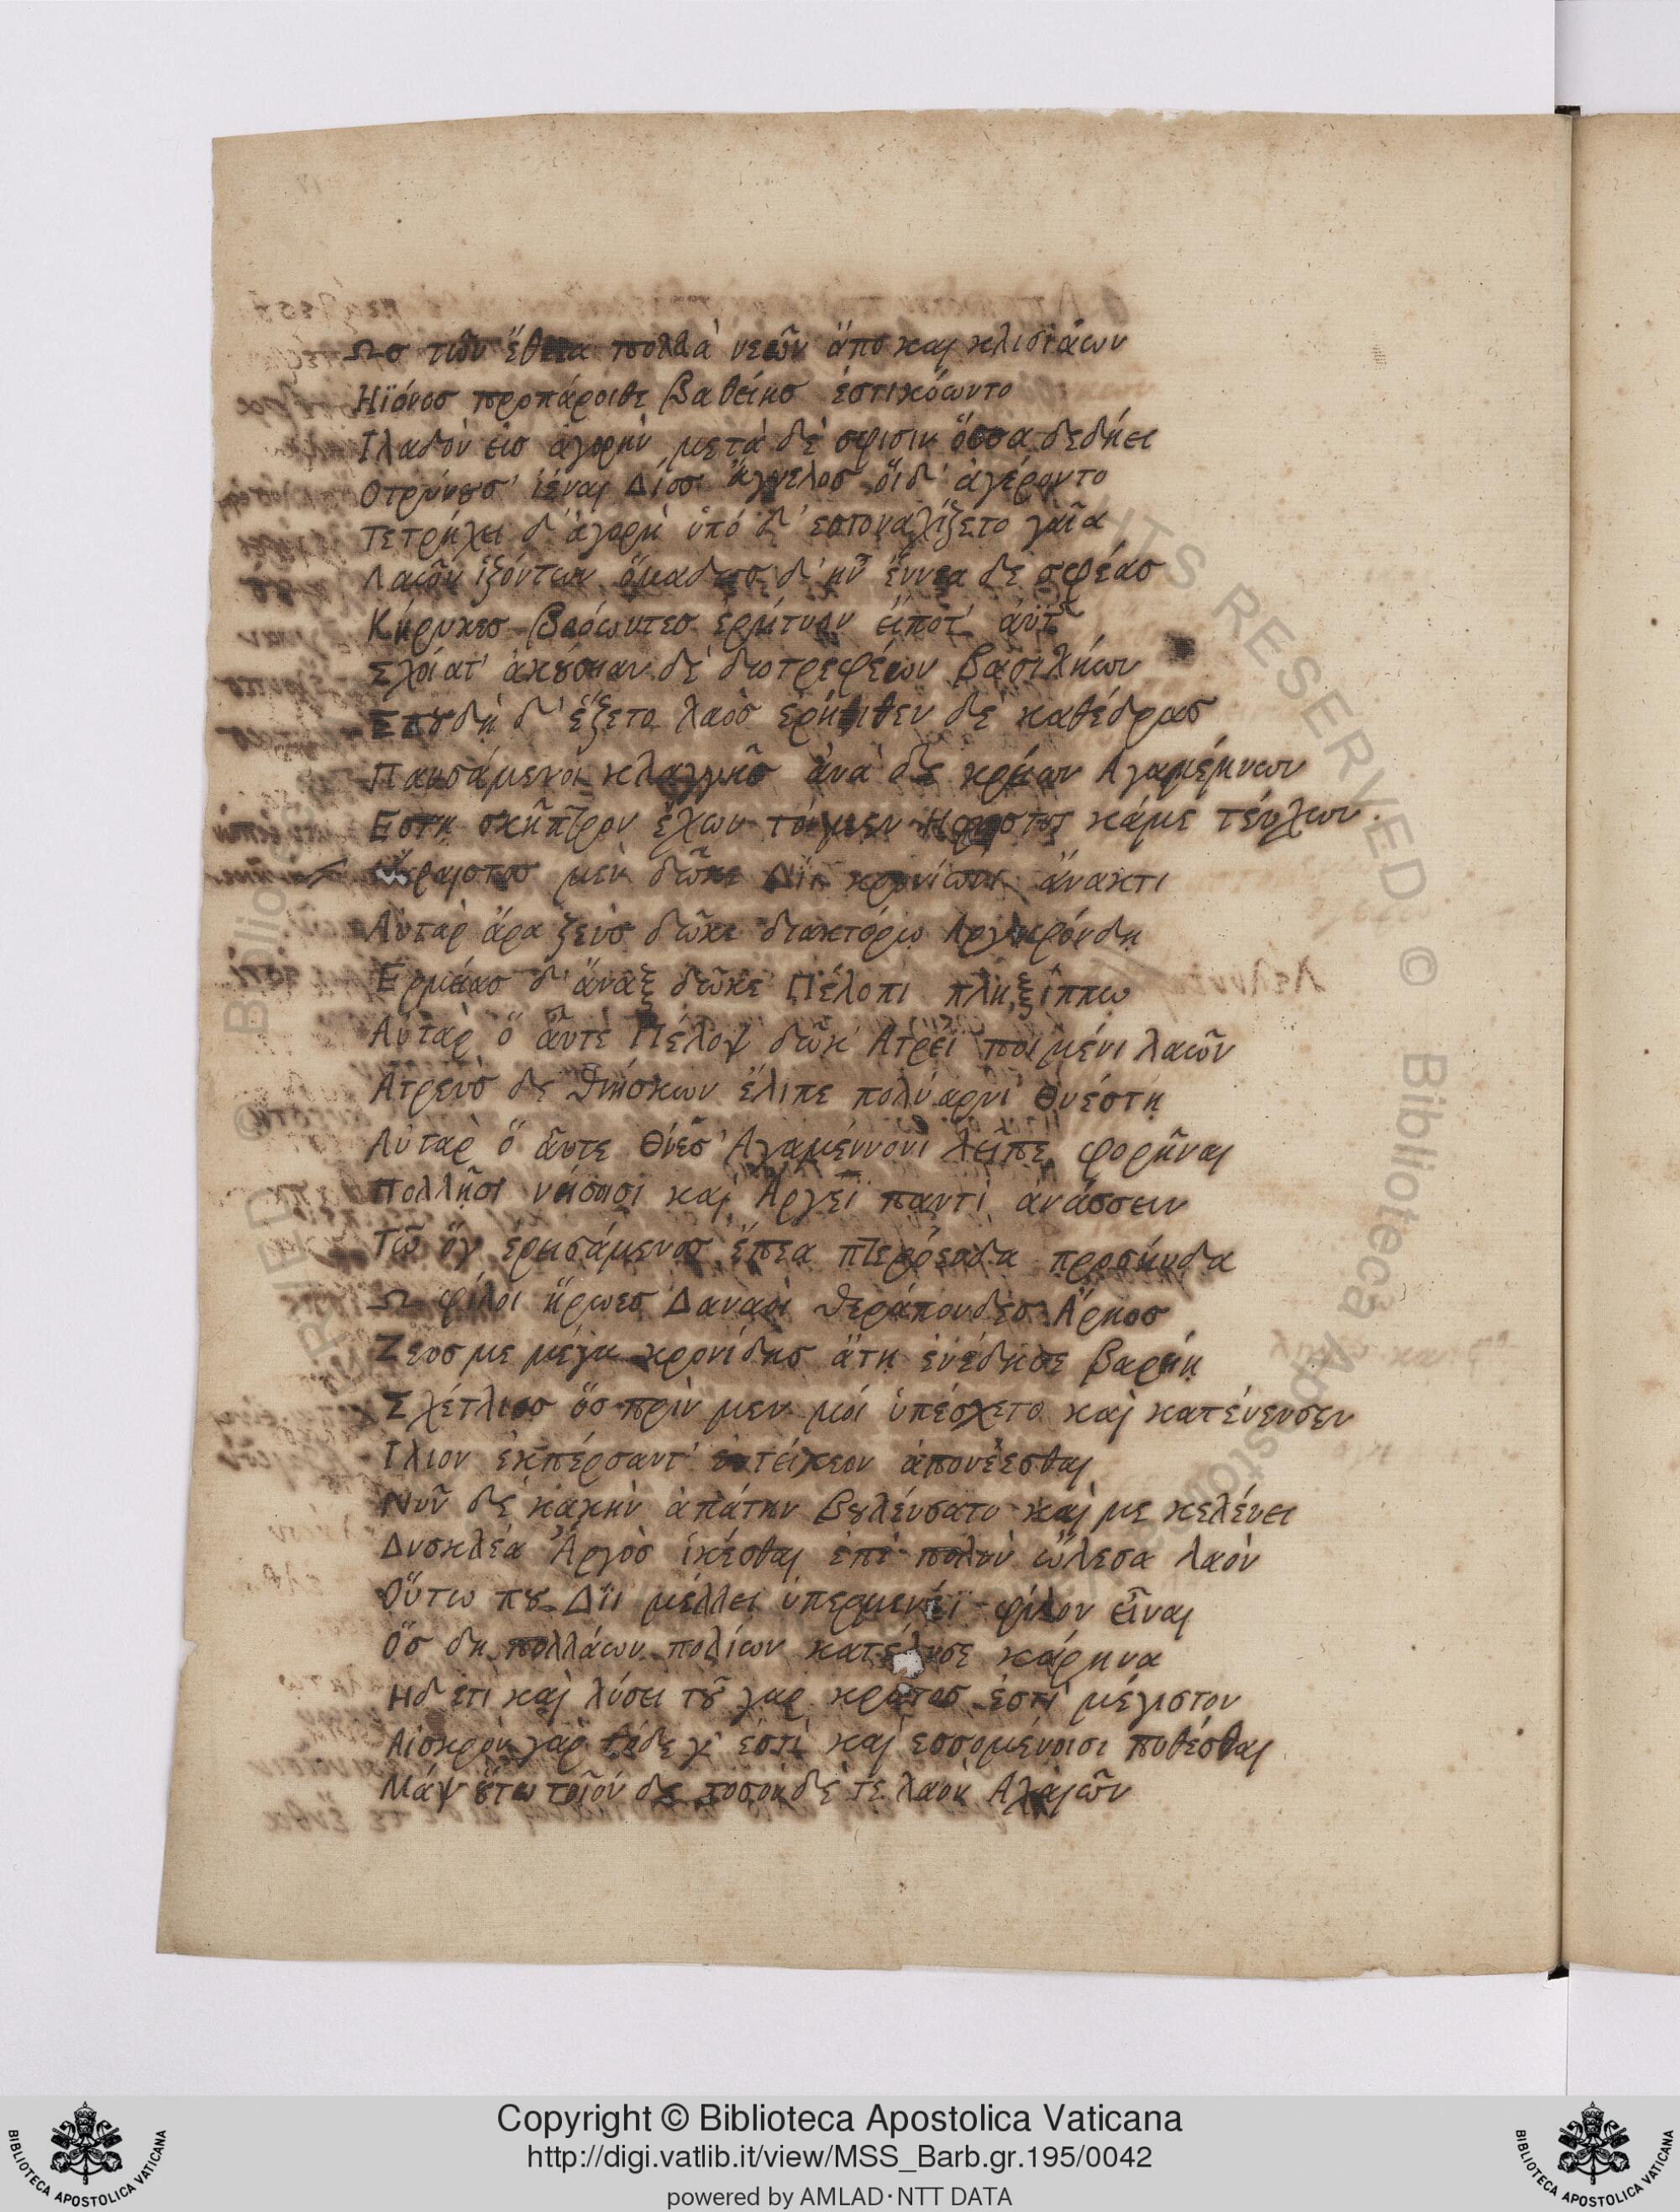 Ωσ τῶν ἔθνεα πολλὰ νεῶν ἄπο καὶ κλισιάων
Ηϊόνοσ προπάροιθε βαθείησ ἐστικόωντο
Ιλαδὸν εἰσ ἀγορὴν μετὰ δὲ σφισιν ὄσσα δεδήει
Οτρύνουσ' ἰέναι Δίοσ ἄγγελοσ ὅιδ' ἀγέροντο
Τετρήχει δ' ἀγορὴ ὑπό δ' εστοναχίζετο γαῖα
Λαῶν ἱζόντων ὅμαδοσ δ' ην ἔννεα δὲ σφέασ
Κήρυκεσ βοόωντεσ ἐρήτυον εἴποτ' ἀϋτ
Σχοίατ' ἀκούσειαν δὲ διοτρεφέων βασιλήων
Σπουδῇ δ' ἕζετο λαὸσ ἐρήτιθεν δὲ καθέδρασ
Παυσάμενοι κλαγγῆσ ἀνὰ δὲ κρείων Αγαμέμνων
Εστη σκῆπτρον ἔχων τόιμεν κάμε τέυχων.
μεν δῶκε Διῒ κρονίωνι ἄνακτι
Αὐταρ ἄρα ζεὺσ δῶκε διακτόρω
Ερμείασ δ' ἄναξ δῶκε Πέλοπι πληξίππω
Αὐταρ ὅ ἆυτὲ Πέλοψ δῶκ' Ατρέϊ ποιμένι λαῶν
Ατρεὺσ δὲ θνήσκων ἔλιπε πολύαρνι Θυέστη
Αὐταρ ὅ ἆυτε Θύεσ' Αγαμέννονι λεῖπε φορῆναι
Πολλῆσι νήσοισι καὶ Ἄργεϊ παντὶ ἀνάσσειν
Τῶ ὅγ' ἐρεισάμενοσ ἔπεα πτερόενδα προσηύδα
Ω φίλοι ἥρωεσ Δαναοὶ θεράπονδεσ Ἄρηοσ
Ζεύσ με μέγα κρονίδησ ἄτη ἐνέδησε βαρείη
Σχέτλιοσ ὅσ πρὶν μεν μόι ὑπέσχετο καὶ κατένευσεν
Ιλιον ἐκπέρσαντ' ἐυτείχεον ἀπονέεσθαι
Νῦν δὲ κακὴν ἀπάτην βουλέυσατο καὶ με κελέυει
Δυσκλέα Ἄργὸσ ἱκέσθαι ἐπὲ πολὺν ὤλεσα λαὸν
Οὕτω που Διῒ μέλλει ὑπερμενέϊ φίλον εἶναι
Ὅσ δη πολλάων πολίων κατέλυσε κάρηνα
Ηδ ετι καὶ λύσει τοῦ γαρ κράτοσ ἐστὶ μέγιστον
Αἰσκρὸν γὰρ τόδε γ' ἐστὶ καὶ εσσομένοισι πυθέσθαι
Μάψ οὕτω τοῖόν δε τοσόνδέ τε λαὸν Αχαιῶν
RIGHTS RESERVED © Biblioteca Apostolica
Copyright © Biblioteca Apostolica Vaticana
http://digi.vatlib.it/view/MSS_Barb.gr.195/0042
powered by AMLAD·NTT DATA
BIBLIOTECA APOSTOLICA VATICANA
BIBLIOTECA APOSTOLICA VATICANA